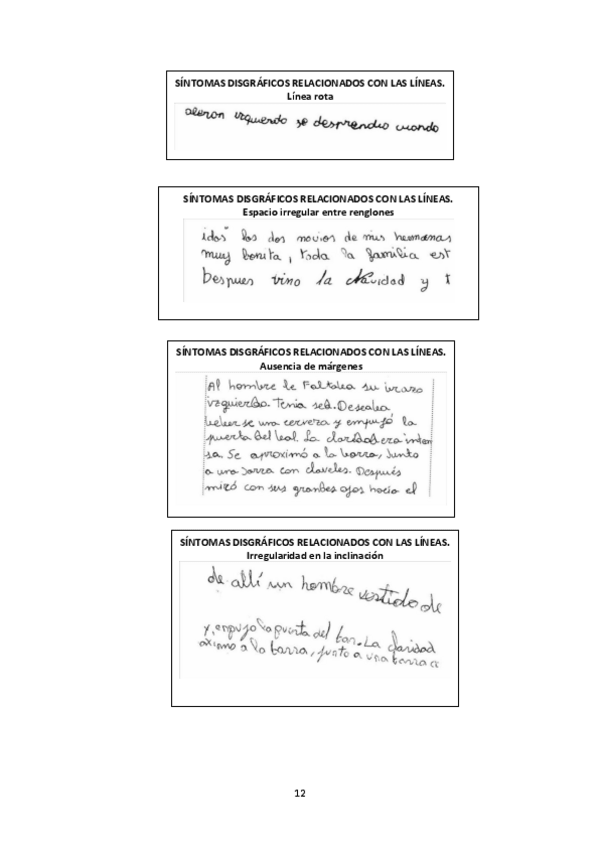 SÍNTOMAS DISGRÁFICOS RELACIONADOS CON LAS LÍNEAS.
Línea rota
aleron izquierdo se desprendio cuando
SÍNTOMAS DISGRÁFICOS RELACIONADOS CON LAS LÍNEAS.
Espacio irregular entre renglones
idos" los dos novios de mis hermanas
muy bonita, toda la familia est
Despues vino la Navidad y t
SÍNTOMAS DISGRÁFICOS RELACIONADOS CON LAS LÍNEAS.
Ausencia de márgenes
Al hombre le Faltaba su brazo
izquierdo. Tenia sed. Deseaba
beberse una cerveza y empujó la
puerta del bal. La claridad era inten
sa. Se aproximó a la barra, Junto
a una Jarra con claveles. Después
miró con sus grandes ojos hacia el
SÍNTOMAS DISGRÁFICOS RELACIONADOS CON LAS LÍNEAS.
Irregularidad en la inclinación
de allí un hombre vestido de
y, empujo la puerta del bar. La claridad
oximo a la barra, junto a una barra c
12